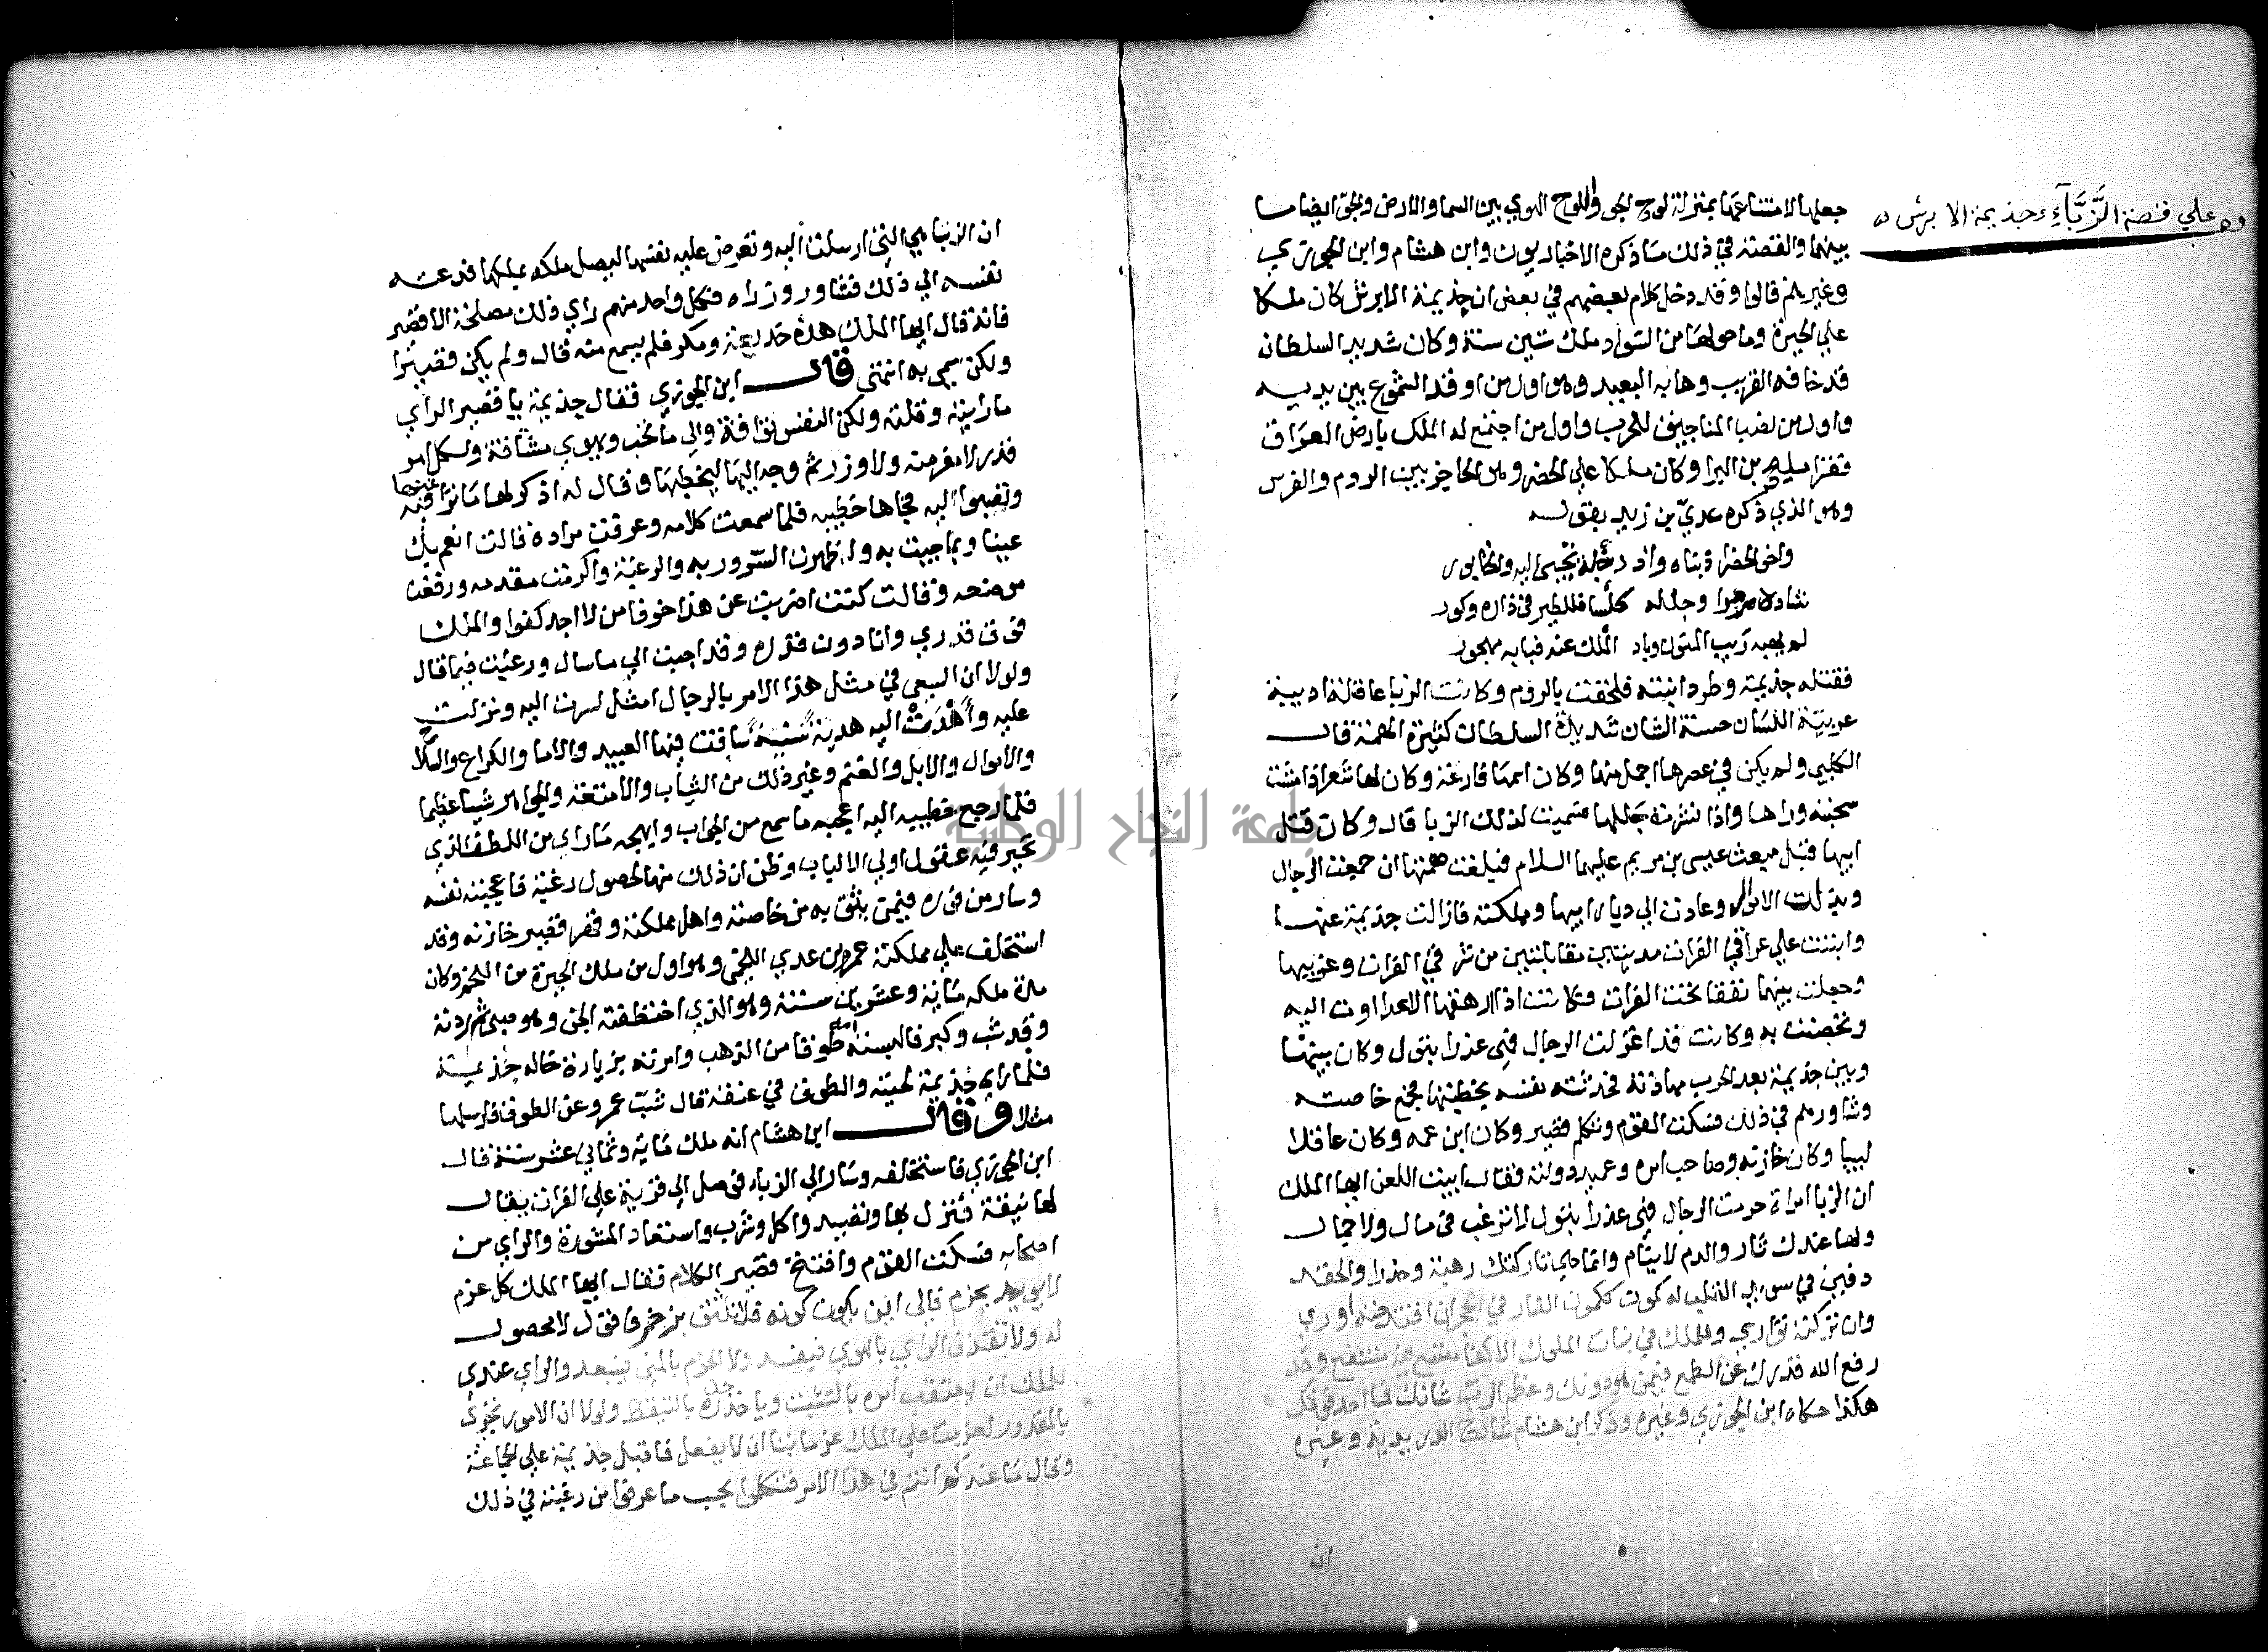 على قصة الزَّبَّآءِ وجذيمة الابرش
جعلها لامتناعها بمنزلة لوح الجو واللوح الهوي بين السما والارض والجو ايضا ما
بينهما والقصة في ذلك ما ذكره الاخباريون وابن هشام وابن الجوزي
وغيرهم قالوا وقد دخل كلام بعضهم في بعض ان جذيمة الابرش كان ملكا
على الحيرة وما حولها من السواد ملك ستين سنة وكان شديد السلطان
قد خافه القريب وهابه البعيد وهو اول من اوقد الشموع بين يديه
واول من نصب المناجيق للحرب واول من اجتمع له الملك بارض العراق
فغزا مليح بن البرا وكان ملكا على الحضر وهو الحاجز بين الروم والفرس
وهو الذي ذكره عدي بن زيد بقوله
واخو الحضر اذ بناه واذ دجلة تجبى اليه والخابور
شاده مرمرا وجلله كلسا فللطير في ذراه وكور
لم يهبه ريب المنون وباد الملك عنه فبابه مهجور
فقتله جذيمة وطرد ابنته فلحقت بالروم وكانت الزبا عاقلة اديبة
عربية اللسان حسنة الشان شديدة السلطان كثيرة الهمة قال
الكلبي ولم يكن في عصرها اجمل منها وكان اسمها فارغة وكان لها شعر اذا مشت
سحبته وراها واذا نشرته جللها فسميت لذلك الزبا قال وكان قتل
ابيها قبل مبعث عيسى بن مريم عليهما السلام فبلغت همتها ان جمعت الرجال
وبذلت الاموال وعادت الى ديار ابيها ومملكته فازالت جذيمة عنها
وابتنت على عراقي الفرات مدينتين متقابلتين من شرقي الفرات وغربيها
وجعلت بينهما نفقا تحت الفرات وكانت اذا ارهقها الاعدا اوت اليه
وتحصنت به وكانت قد اعتزلت الرجال فهي عذرا بتول وكان بينها
وبين جذيمة بعد الحرب مهادنة فحدثته نفسه بخطبتها فجمع خاصته
وشاورهم في ذلك فسكت القوم وتكلم قصير وكان ابن عمه وكان عاقلا
لبيبا وكان خازنه وصاحب امره وعميد دولته فقال ابيت اللعن ايها الملك
ان الزبا امراة حرمت الرجال فهي عذرا بتول لا ترغب في مال ولا جمال
ولها عندك ثار والدم لا ينام وانما هي تاركتك رهبة وحذرا والحقد
دفين في سويدا القلب له كمون ككمون النار في الحجر ان اقتدحته اورى
وان تركته توارى وللملك في بنات الملوك الاكفا متسع فيه منتفع وقد
رفع الله قدرك عن الطمع فيمن هو دونك وعظم الرب شانك فما احد فوقك
هكذا حكاه ابن الجوزي وغيره وذكر ابن هشام شارح الدريدية وغيره
ان
ان الزبا هي التي ارسلت اليه وتعرض عليه نفسها ليصل ملكه بملكها فدعته
نفسه الى ذلك فشاور وزراه فكل واحد منهم راي ذلك مصلحة الا قصير
فانه قال ايها الملك هذه خديعة ومكر فلم يسمع منه قال ولم يكن قصيرا
ولكن سمي به انتهى قال ابن الجوزي فقال جذيمة يا قصير الراي
ما رايته وقلته ولكن النفس تواقة والى ما تحب وتهوي مشتاقة ولكل امر
قدر لا مفر منه ولا وزر ثم وجه اليها ليخطبها وقال له اذكر لها ما ترغبها فيه
وتصبو اليه فجاها خطيبه فلما سمعت كلامه وعرفت مراده قالت انعم بك
عينا وبما جيت به واظهرت السرور به والرغبة واكرمت مقدمه ورفعت
موضعه وقالت كنت اضربت عن هذا خوفا من لا اجد كفوا والملك
فوق قدري وانا دون قدره وقد اجبت الي ما سال ورغبت فيما قال
ولولا ان السعي في مثل هذا الامر بالرجال امثل لسرت اليه ونزلت
عليه وأَهْدَتْ اليه هدية سنية ساقت فيها العبيد والاما والكراع والسلاح
والاموال والابل والغنم وغير ذلك من الثياب والامتعة والجواهر شيا عظيما
فلما رجع خطيبه اليه اعجبه ما سمع من الجواب وابهجه ما راي من اللطف الذي
تحير فيه عقول اولي الالباب وظن ان ذلك منها لحصول رغبة فاعجبته نفسه
وسار من فوره فيمن يثق به من خاصته واهل مملكته وفيهم قصير خازنه وقد
استخلف على مملكته عمرو بن عدي اللخمي وهو اول من ملك الحيرة من اللخم وكان
مدة ملكه مائة وعشرين سنة وهو الذي اختطفته الجن وهو صبي ثم ردته
وقد شب وكبر فالبسته امه طوقا من الذهب وامرته بزيارة خاله جذيمة
فلما راي جذيمة لحيته والطوق في عنقه قال شب عمرو عن الطوق فارسلها
مثلا وقال ابن هشام انه ملك ماية وثماني عشر سنة قال
ابن الجوزي فاستخلفه وسار الى الزبا فوصل الى قرية على الفرات يقال
لها نيفة فنزل بها وتصيد واكل وشرب واستعاد المشورة والراي من
اصحابه فسكت القوم وافتتح قصير الكلام فقال ايها الملك كل عزم
لا يويد بحزم فالى اين يكون كونه فلا تثق بزخرف قول لا محصول
له ولا تقذف الراي بالهوي فيفسد ولا الحزم بالمنى فيبعد والراي عندي
للملك ان يعتقب امره بالتثبت وياخذ حذره بالتيقظ ولولا ان الامور تجري
بالمقدور لعزمت على الملك عزما بتا ان لا يفعل فاقبل جذيمة على الجماعة
وقال ما عندكم انتم في هذا الامر فتكلموا بحسب ما عرفوا من رغبته في ذلك